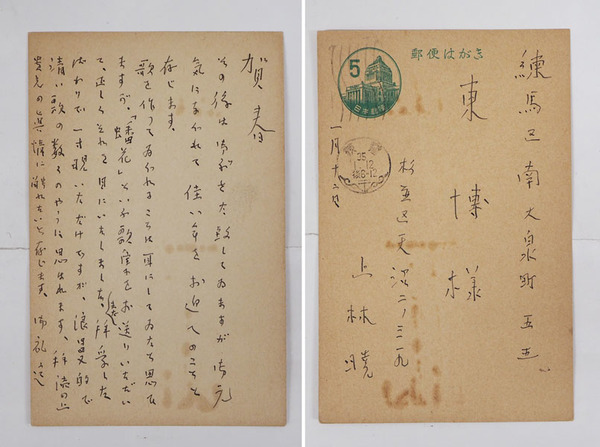 賀春
その後は御ぶさた致してゐますが御元
気にゐられて佳い年をお迎へのことと
存じます。
歌を作つてゐられることは耳にしてゐたと思ひ
ますが、といふ歌集をお送りいただい
て、正しくそれを目にいたしました。まだ拝受した
ばかりで一寸覗いただけですが、浪曼的で
清い歌の数々のやうに思はれます。拝読の上
貴兄の真情に触れたいと存じます。御礼まで
郵便はがき
5
日本郵便
練馬区南大泉町五五
東博様
35
1.12
後6-12
杉並区天沼二ノ三一九
上林暁
一月十二日